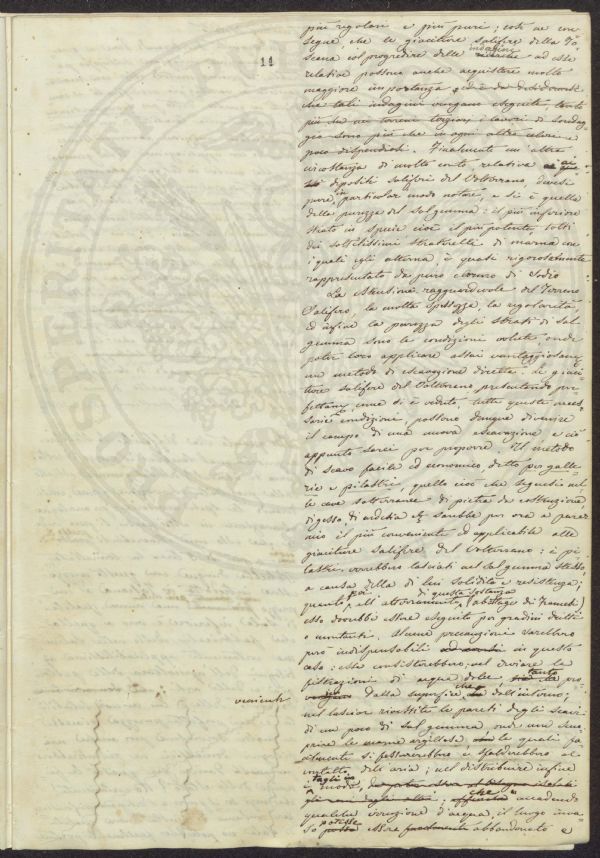 11
più regolari e più pure; così ne con
segue, che le giaciture salifere della To
scana col progredire delle indagini ad esse
relative possono anche acquistare molta
maggiore importanza
che tali indagini vengano eseguite, tanto
più che nei terreni terziari i lavori di sondag
gio sono più che in ogni altro
poco dispendiosi. Finalmente un'altra
circostanza di molto conto, relativa ai
depositi saliferi del Volterrano, devesi
pure, in particolar modo notare, e si è quella
della purezza del salgemma: il più inferiore
strato in specie cioè il più potente, tolti
dei sottilissimi straterelli di marna con
i quali egli alterna, è quasi rigorosamente
rappresentato da puro cloruro di Sodio
La estensione ragguardevole del Terreno
Salifero, la molta spessezza, la regolarità,
ed infine la purezza degli strati di Sal
gemma sono le condizioni volute onde
poter loro applicare assai vantaggiosam
un metodo di escavazione diretta. Le giaci
ture salifere del Volterrano presentando per
fettam, come si è veduto, tutte queste neces
sarie condizioni, possono dunque divenire
il campo di una nuova escavazione e ciò
appunto sarei per proporre. Il metodo
di scavo facile ed economico, detto per galle
rie e pilastri, quello cioè che seguesi nel
le cave sotterranee di pietra da costruzione,
di gesso, di ardesia &c sarebbe per ora a parer
mio il più conveniente ed applicabile alle
giaciture salifere del Volterrano: i pi
lastri verrebbero lasciati nel salgemma stesso,
a causa della di lui solidità e resistenza;
quanto poi all'atterramento di questa sostanza (abattage dei Francesi)
esso dovrebbe essere eseguito per gradini diritti
o montanti. Alcune precauzioni sarebbero
però indispensabili in questo
caso: esse consisterebbero, nel deviare le
filtrazioni di acqua dolce tanto pro
venienti dalla superficie che dall'interno;
nel lasciar rivestite le pareti degli scavi
di un poco di sal gemma, onde non sco
prire le marne argillose, le quali fa
cilmente si fessurerebbero e sfalderebbero al
contatto dell'aria; nel distribuire infine
i tagli in modo, che accadendo
qualche irruzione d'acqua, il luogo inva
so potesse essere abbandonato e